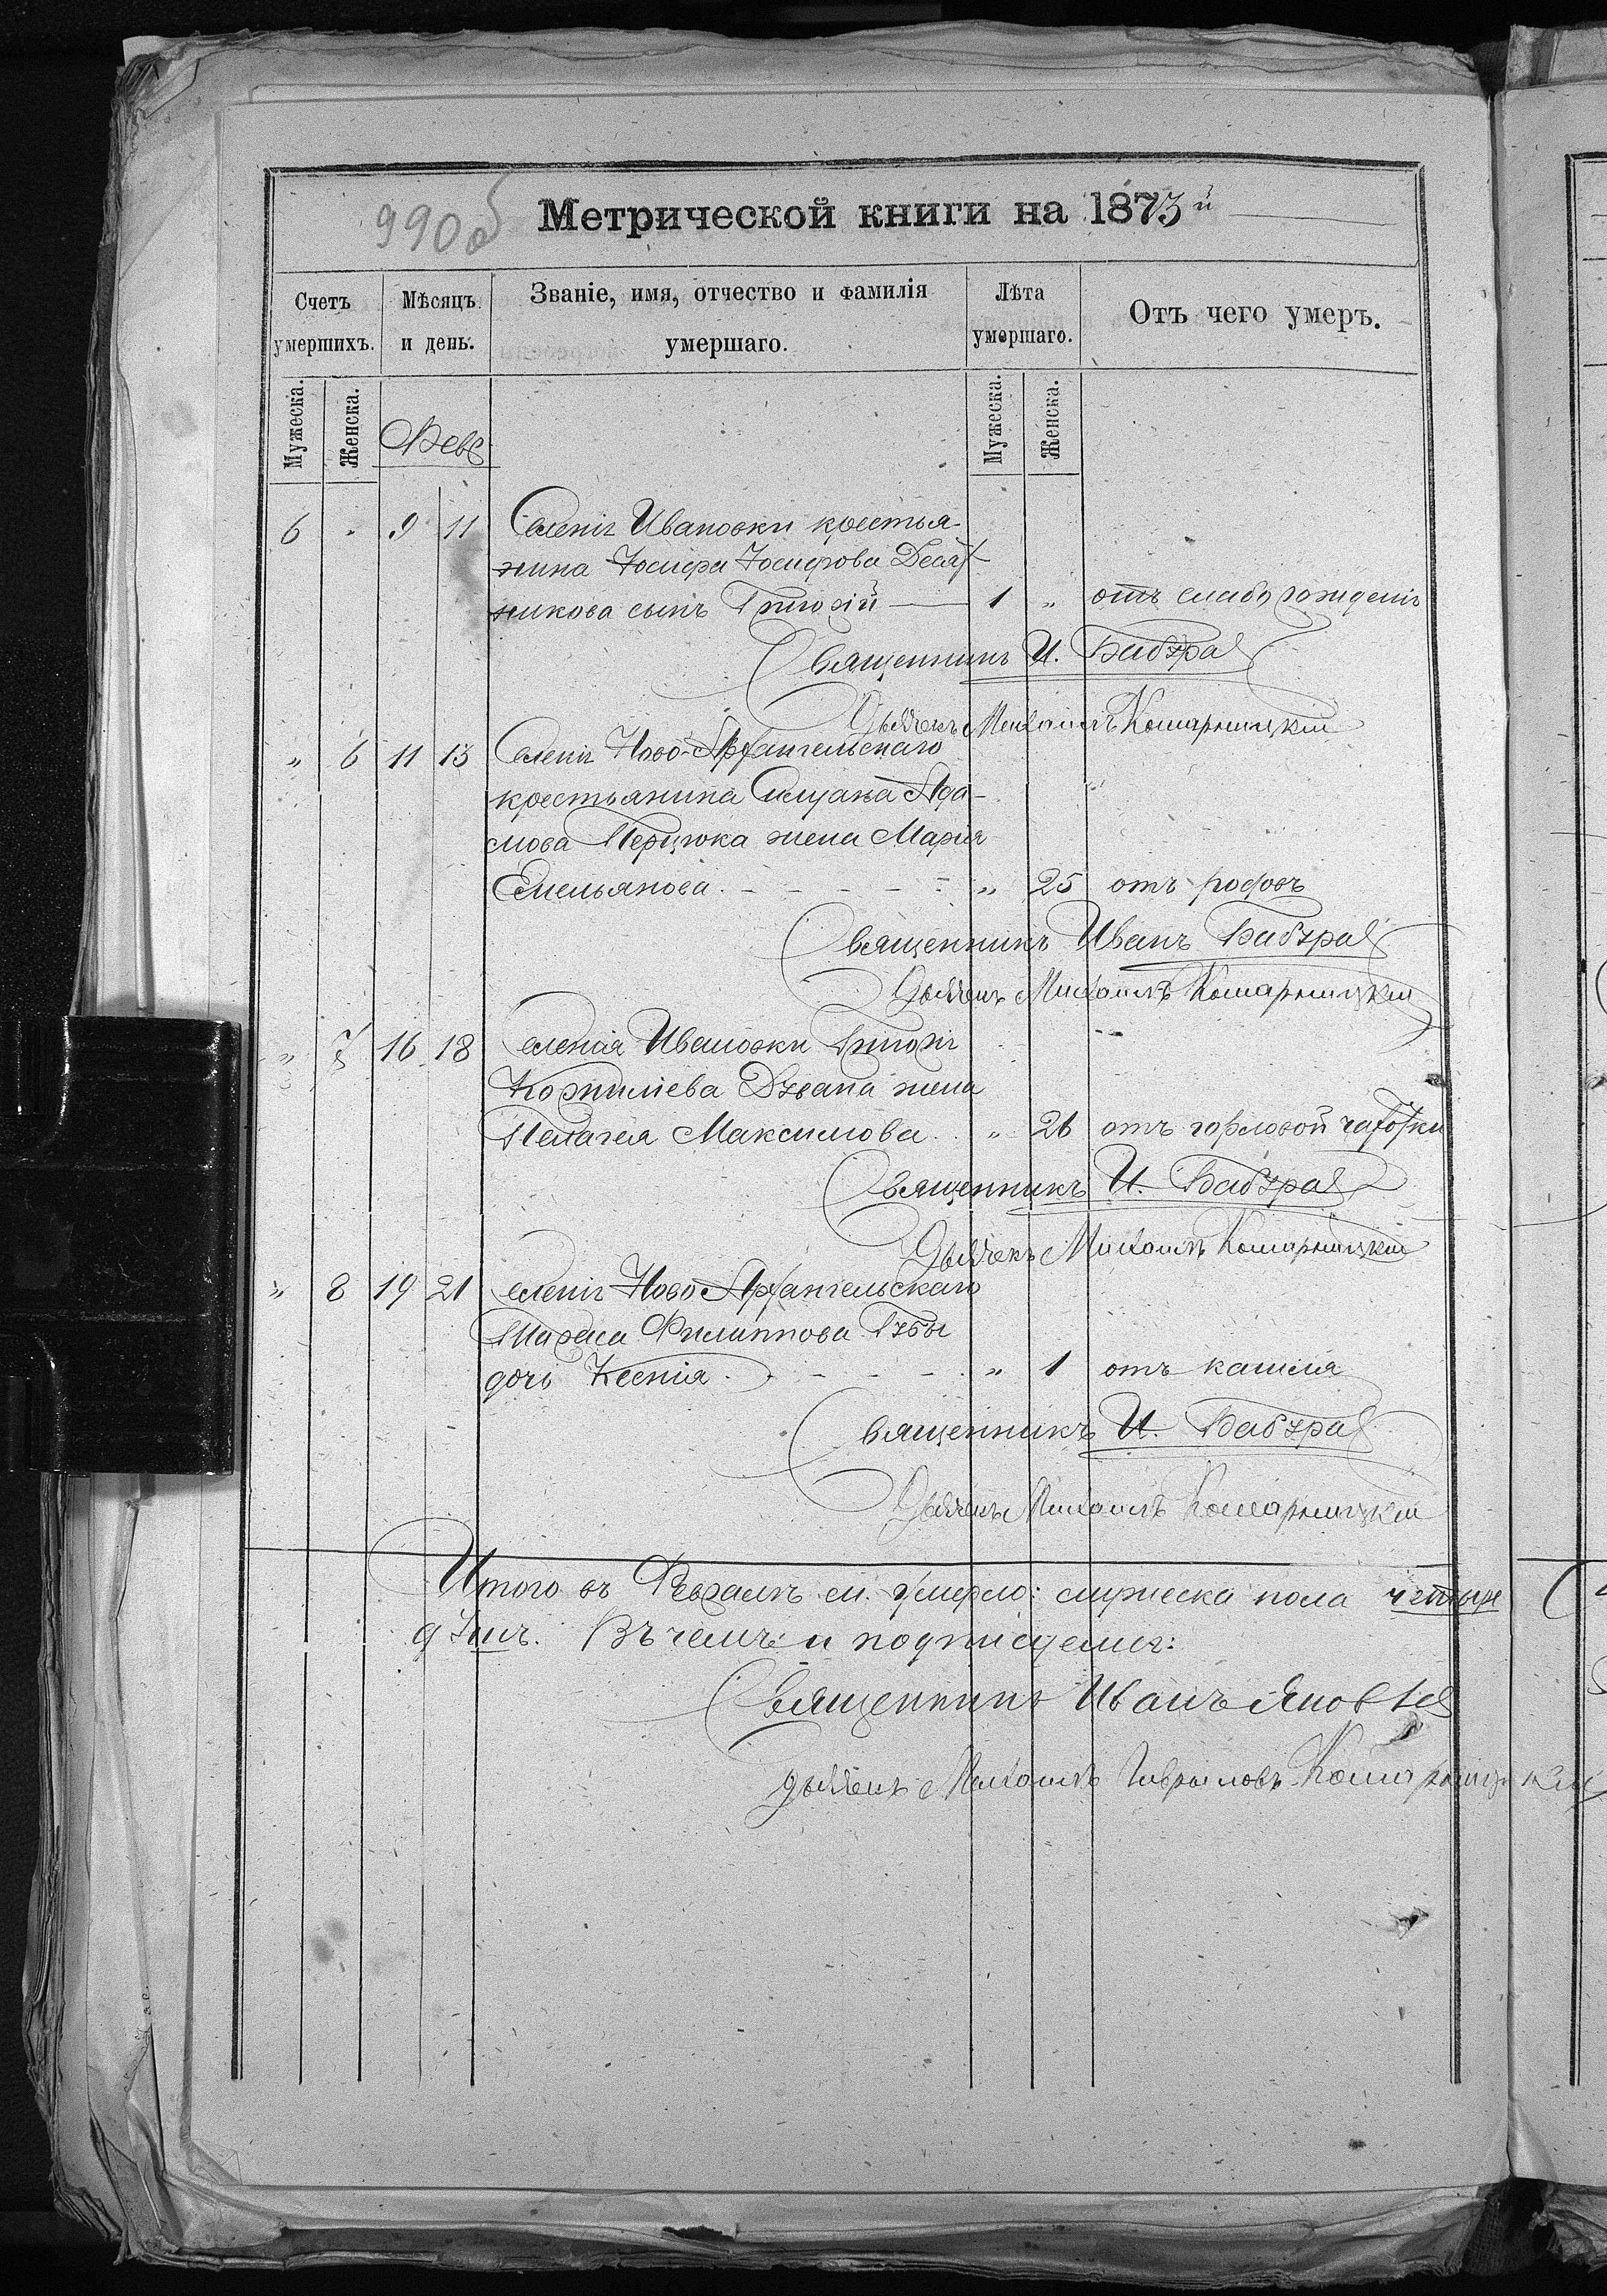 990б Метрической книги на 1873й
Счетъ умершихъ. Мѣсяцъ и день. Званіе, имя, отчество и фамилія умершаго. Лѣта умершаго. Отъ чего умеръ.
Мужеска. Женска. Февр. Мужеска. Женска.
6 " 9 11 Селенія Ивановки крестья-
нина Іосифа Іосифова
никова сынъ Григорій — 1 " отъ слабо рожденія
Священникъ И. Бабура
Дьячекъ Михаилъ Комарницкій
" 6 11 13 Селенія Ново-Архангельскаго
крестьянина Ада-
мова Перцюка жена Марія
Емельянова. - - - - - " 25 отъ родовъ
Священникъ Иванъ Бабура
Дьячекъ Михаилъ Комарницкій
" 7 16 18 Селенія Ивановки Григорія
Корнилиева Дзвана жена
Пелагея Максимова. " 26 отъ горловой чахотки
Священникъ И. Бабура
Дьячекъ Михаилъ Комарницкій
" 8 19 21 Селенія Ново-Архангельскаго
Тараса Филиппова Губы
дочь Ксенія. - - - - " 1 отъ кашля
Священникъ И. Бабура
Дьячекъ Михаилъ Комарницкій
Итого въ Февралѣ м. умерло: мужеска пола четыре
душъ. Въ чемъ и подписуемся:
Священникъ Иванъ
дьячекъ Михаилъ Гавриловъ Комарницкій